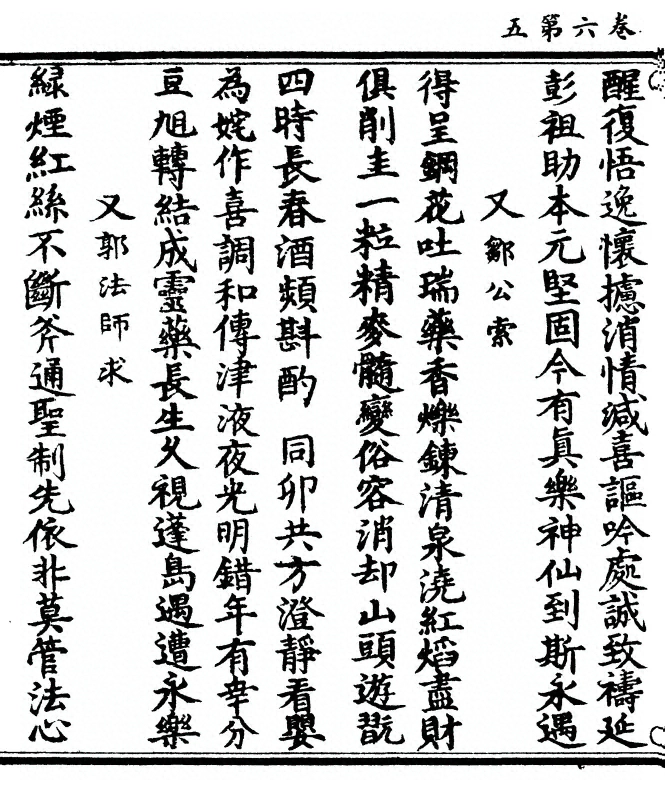 卷六第五
醒復悟逸懷攄消情減喜謳吟處誠致禱延
彭祖助本元堅固今有眞樂神仙到斯永遇
又鄒公索
得呈鋼花吐瑞藥香爍鍊清泉澆紅熖盡財
俱削圭一粒精麥髓變俗容消却山頭遊翫
四時長春酒頻斟酌 同卯共方澄靜看嬰
為姹作喜調和傳津液夜光明錯年有幸分
豆旭轉結成靈藥長生久視蓬島遇遭永樂
又郭法師求
緑煙紅絲不斷斧通聖制先依非莫管法心